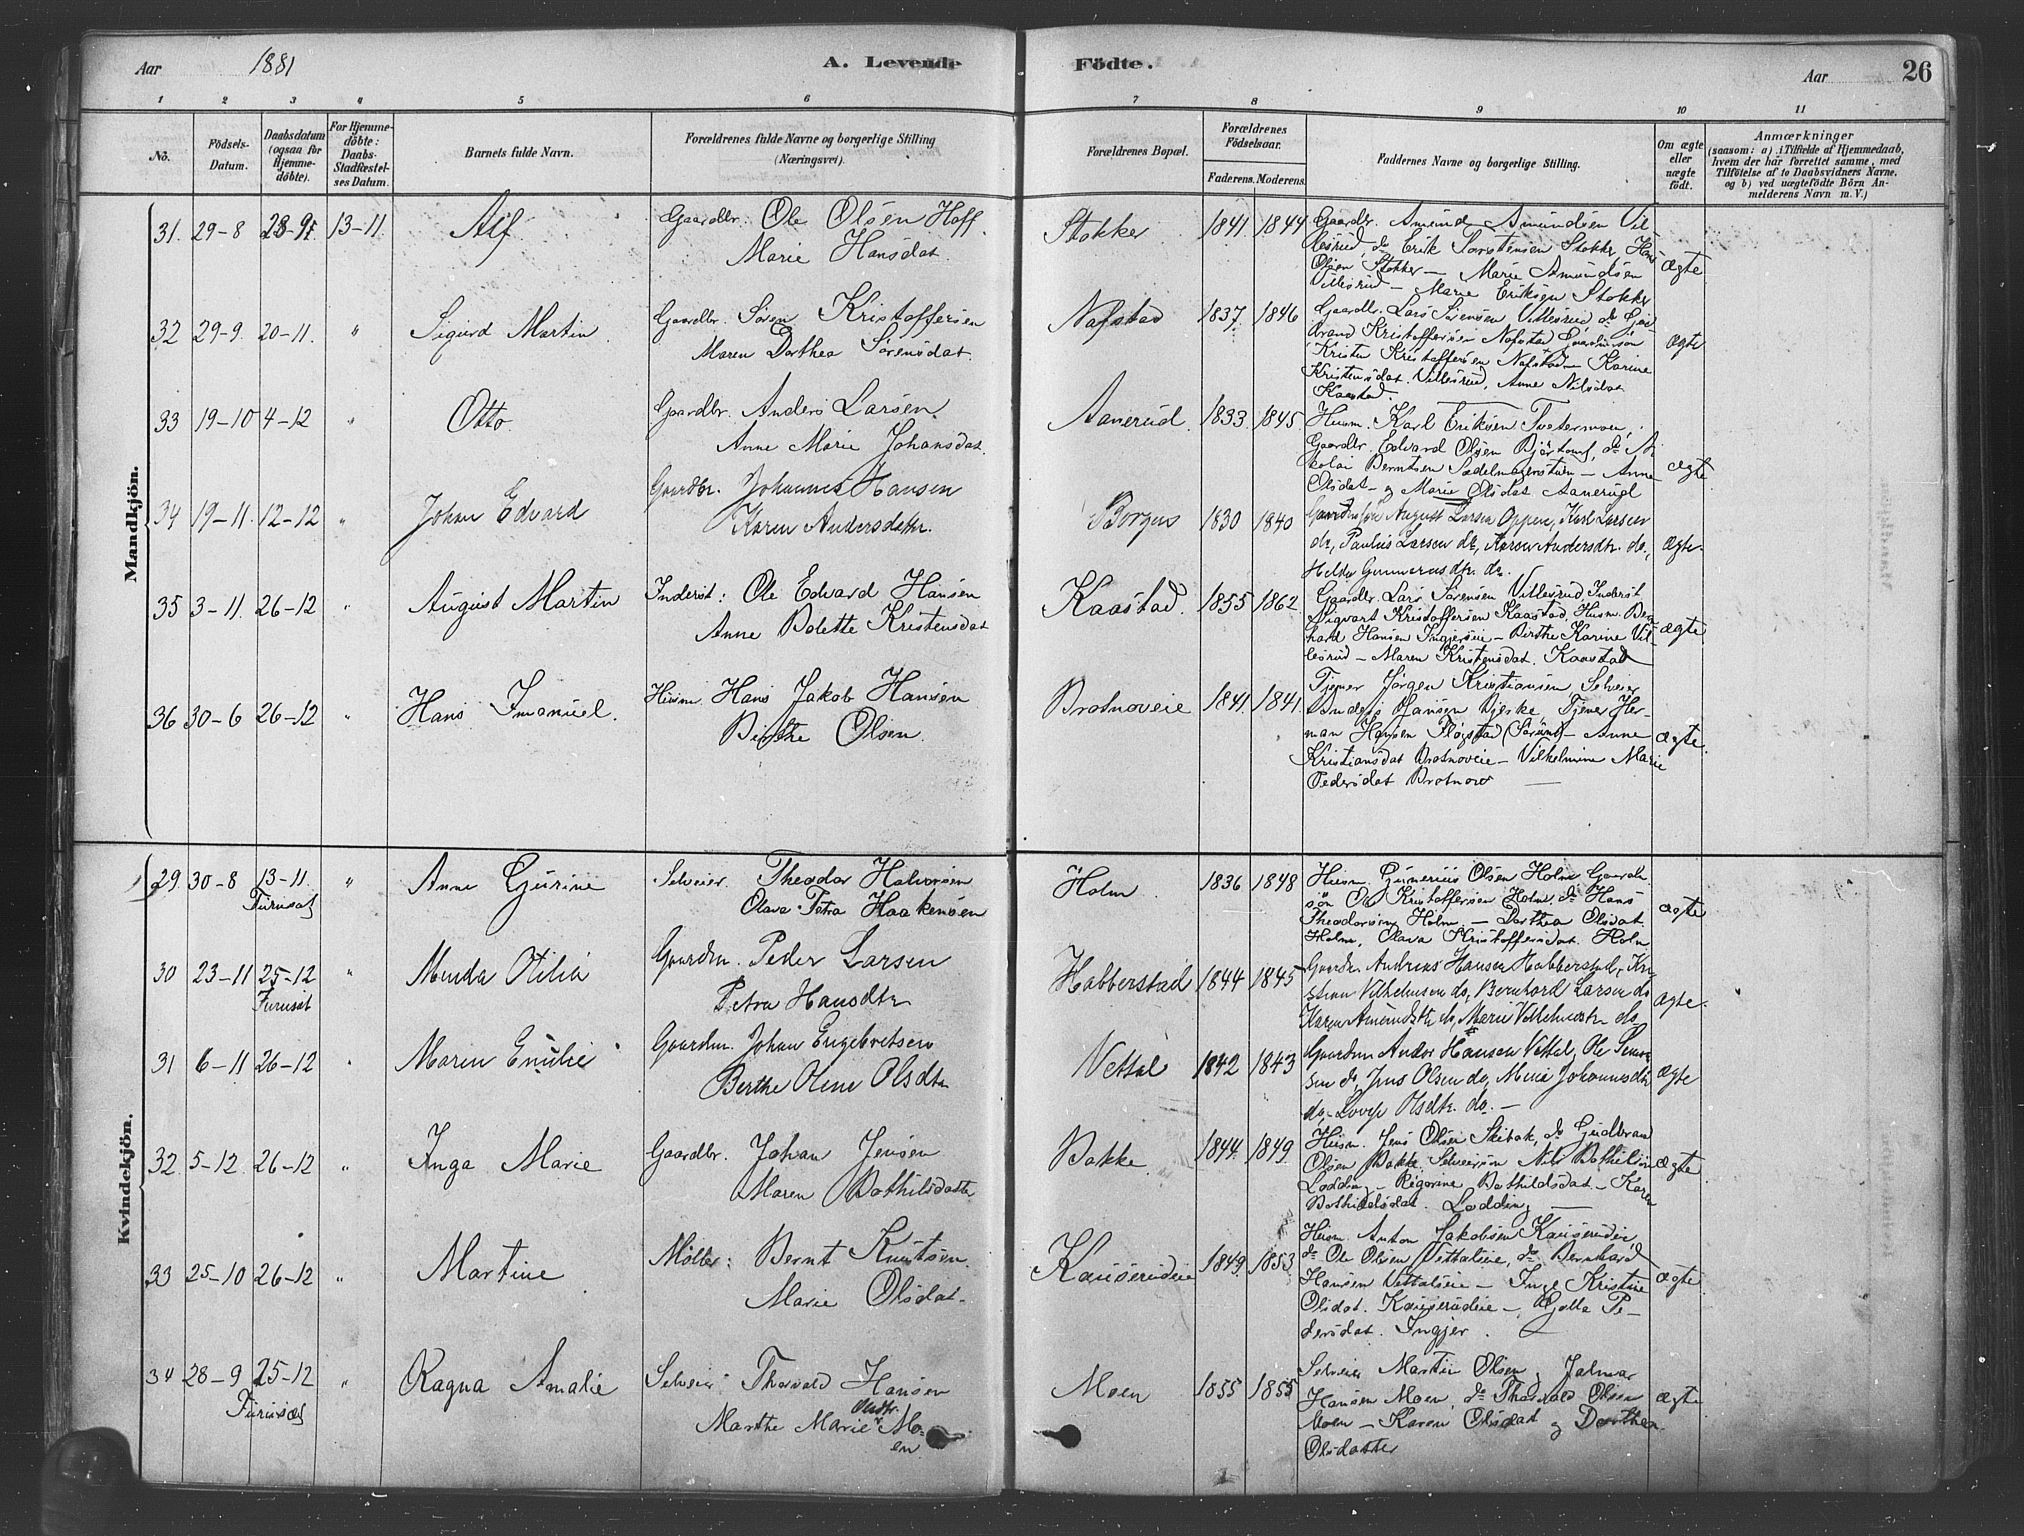 Aar 1881 A. Levende Födte. Aar 26
1 2 3 4 5 6 7 8 9 10 11
No.
Födsels-
Datum.
Daabsdatum
(ogsaa for
Hjemme-
döbte).
For Hjemme-
döbte:
Daabs-
Stadfæstel-
ses Datum.
Barnets fulde Navn.
Forældrenes fulde Navne og borgerlige Stilling
(Næringsvei).
Forældrenes Bopæl.
Forældrenes
Födselsaar.
Faderens. Moderens.
Faddernes Navne og borgerlige Stilling.
Om ægte
eller
uægte
födt.
Anmærkninger
(saasom: a) i Tilfælde af Hjemmedaab,
hvem der har forrettet samme, med
Tilföielse af to Daabsvidners Navne.
og b) ved uægtefödte Börn An-
melderens Navn m. V.)
Mandkjön.
31. 29-8 13-11 Alf Gaardbr. Ole Olsen Hoff
Marie Hansdat.
Stokker 1841. 1844
Gaardbr. Amund Amundsen Vil-
lesrud, do Erik Torstensen Stokker Hans
Olsen Stokker – Marie Amundsen
Villesrud – Marie Eriksen Stokker
ægte
32 29-9. 20-11. " Sigurd Martin Gaardbr. Sören Kristoffersen
Maren Dorthea Sörensdat.
Nafstad 1837. 1846
Gaardbr. Lars Sörensen Villesrud, do Gud-
brand Kristoffersen Nafstad
Kristen Kristoffersen Nafstad – Karine
Kristensdat. Villesrud, Anne Nilsdat
Kaastad.
ægte
33 19-10 4-12 " Otto Gaardbr. Anders Larsen
Anne Marie Johansdat.
Aanerud. 1833. 1845.
Husm. Karl Eriksen
Gaardbr. Edvard Olsen do Ni-
kolai Berntsen – Anne
Olsdat – og Marie Olsdat Aanerud
ægte
34 19-11. 12-12 " Johan Edvard Gaardbr. Johannes Hansen
Karen Andersdatter.
Borgen 1830 1840
August Larsen Oppen, Karl Larsen
do, Paulus Larsen do, Karen Andersdtr. do,
Gunnerusdtr. do.
ægte.
35 3-11. 26-12 " August Martin Inderst: Ole Edvard Hansen
Anne Bolette Kristensdat
Kaastad. 1855 1862.
Gaardbr. Lars Sörensen Villesrud Inderst
Sigvart Kristoffersen Kaastad, Husm. Bern-
hard Hansen Ingjerseie – Birthe Karine Vil-
lesrud – Maren Kristensdat. Kaastad
ægte
36 30-6 26-12 " Hans Imanuel. Husm. Hans Jakob Hansen
Birthe Olsen.
Brotnoveie 1841. 1841.
Tjener Jörgen Kristiansen, Selveier
Anders Hansen Bjerke Tjener Her-
man Hansen – Anne
Kristiansdat Brotnoveie – Vilhelmine Marie
Pedersdat Brotnov
ægte.
Kvindekjön.
29. 30-8 13-11.
Furuset
" Anne Gurine Selveier. Theodor Halvorsen
Olava Petra Haakensen
Holm. 1836 1848
Husm. Gunerius Olsen Holm Gaardbr.
sön Ole Kristoffersen Holm, do Hans
Theodorsen Holm, – Dorthea Olsdat.
Holm, Olava Kristoffersdat. Holm
ægte
30 23-11 25-12
Furuset
" Minda Otilia Gaardm. Peder Larsen
Petra Hansdtr
Habberstad 1844 1845
Gaardbr. Andreas Hansen Habberstad, Kri-
stian Vilhelmsen do, Bernhard Larsen do
Karen Amundsdtr do, Marie Vilhelmsdtr. do.
ægte.
31 6-11 26-12 " Maren Emilie Gaardm. Johan Engebretsen
Berthe Oline Olsdtr
Vettal 1842 1843
Gaardm Andor Hansen Vettal, Ole
do, Jens Olsen do, Johannesdtr
do, Olsdtr. do. –
ægte
32. 5-12. 26-12 " Inga Marie Gaardbr. Johan Jensen
Maren Bothilsdatter
Bakke. 1844. 1849.
Husm. Jens Olsen Skibak, do Gudbran
Olsen Bakke. Selveiersön Nils Bothilsön
Lodding – Regorine Bothildsdat. – Karen
Bothildsdat. Lodding –
ægte
33 25-10 26-12 " Martine Möller: Bernt Knutsen.
Marie Olsdat.
Kauserudeie 1849. 1853.
Husm. Anton Jakobsen Kauserudeie,
do Ole Olsen Vettaleie, do Bernhard
Hansen Vettaleie – Inge Kristine
Olsdat. Kauserudeie –, Golla Pe-
dersdat. Ingjer.
ægte
34 28-9 25-12
Furuset
" Ragna Amalie Selveier Thorvald Hansen
Marthe Marie Olsdtr. Mo-
en
Moen 1855 1855
Selveier Martin Olsen, Jalmar
Hansen Moen, do Thorvald Olsen
Moen – Karen Olsdat og Dorthea
Olsdatter
ægte